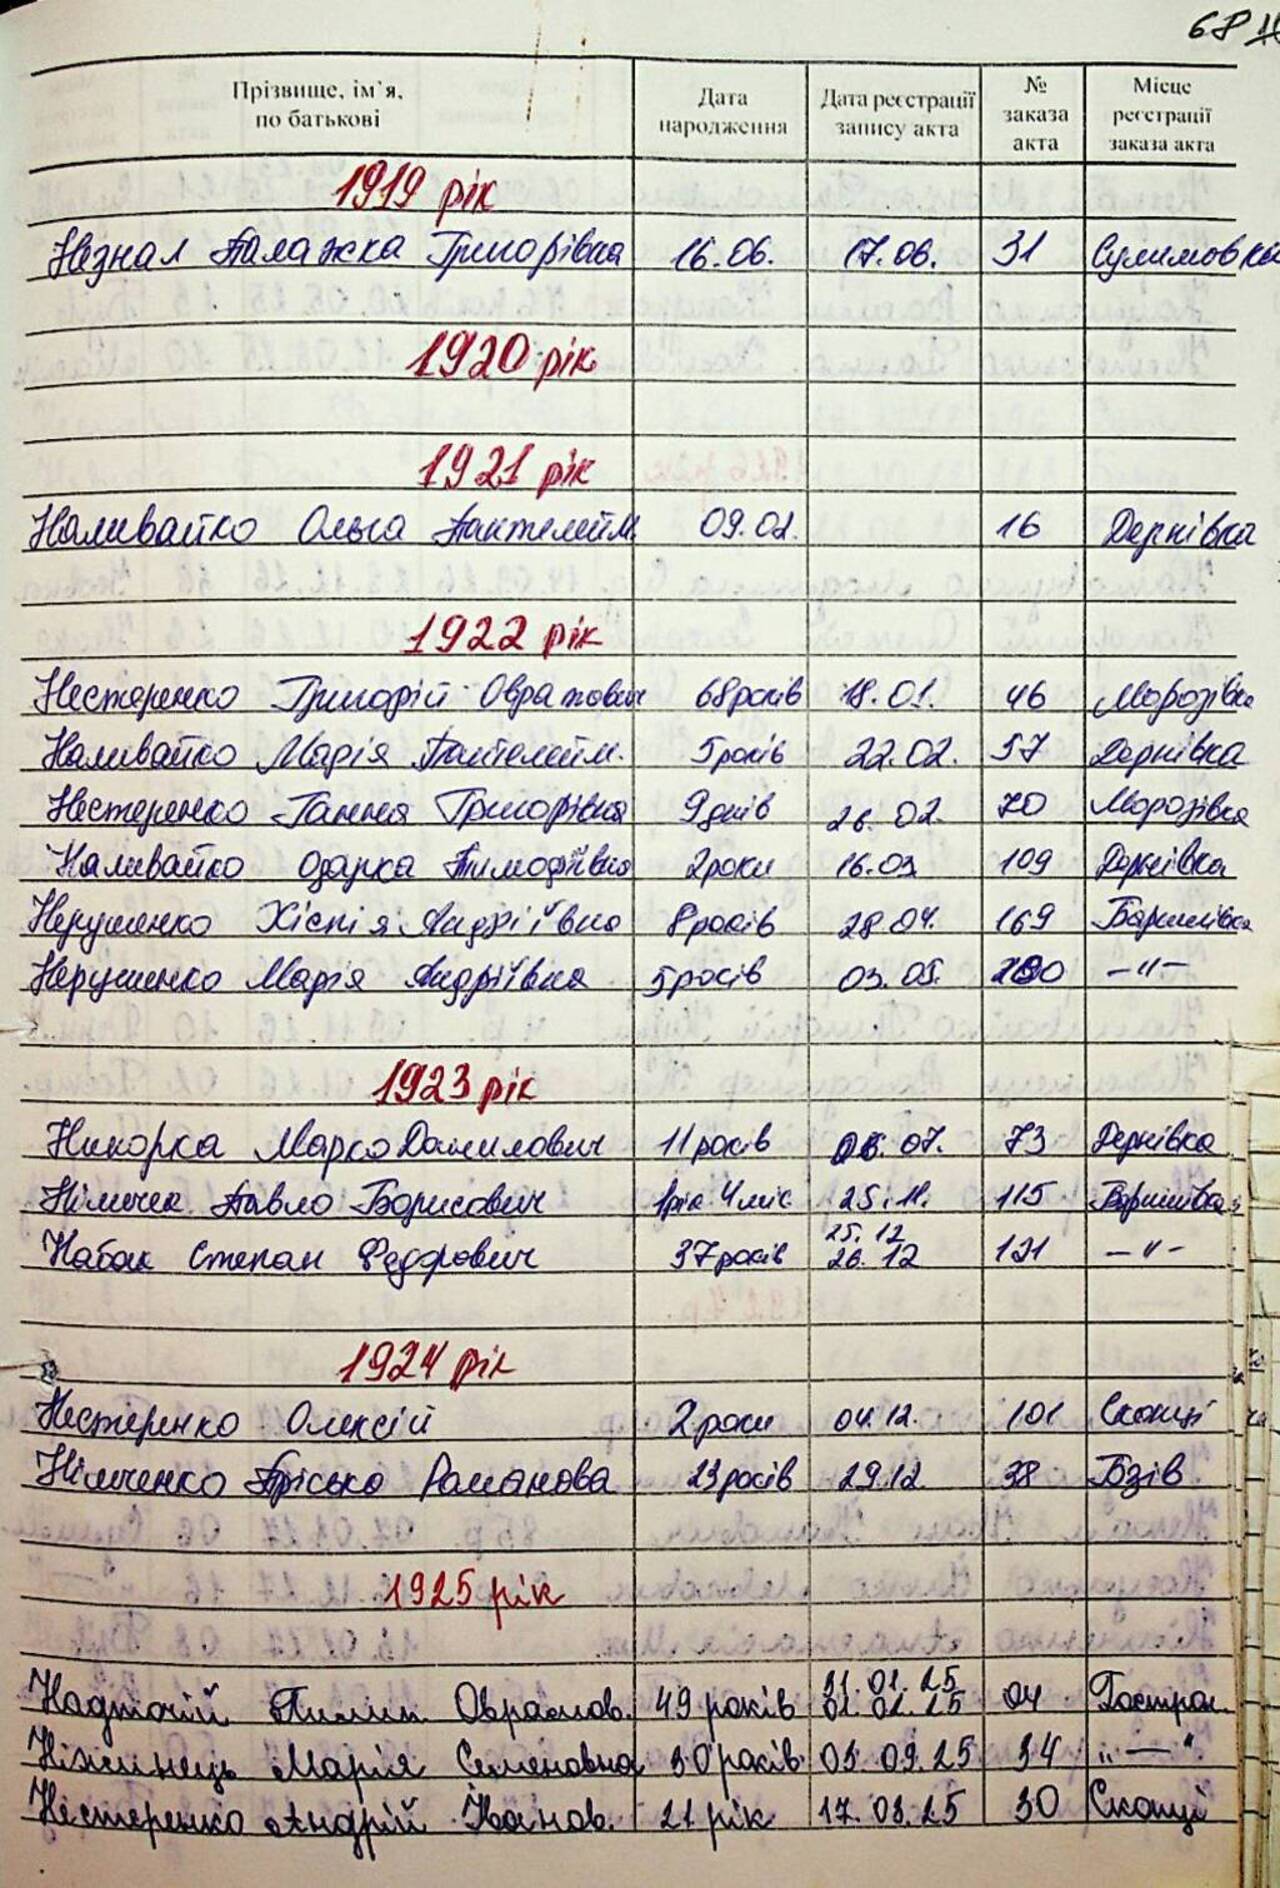 68
Прізвище, ім’я, по батькові Дата народження Дата реєстрації запису акта № заказа акта Місце реєстрації заказа акта
1919 рік
Незнал Палажка Григорівна 16.06. 17.06. 31 Сулимовка
1920 рік
1921 рік
Наливайко Ольга Пантелейм. 09.02. 16 Дернівка
1922 рік
Нестеренко Григорій Оврамович 68 років 18.01. 46 Морозівка
Наливайко Марія Пантелейм. 5 років 22.02. 57 Дернівка
Нестеренко Ганна Григорівна 9 днів 26.02. 70 Морозівка
Наливайко Одарка Тимофіївна 2 роки 16.03 109 Дернівка
Нерушенко Хістія Андріївна 8 років 28.04. 169 Баришівка
Нерушенко Марія Андріївна 5 років 03.05. –"–
1923 рік
Никорка Марко Данилович 11 років 06.07. 73 Дернівка
Німичек Павло Борисович 1 рік 4 міс 25.11. 115 Баришівка
Набок Степан Федорович 37 років 25.12 26.12 121 –"–
1924 рік
Нестеренко Олексій 2 роки 04.12. 101 Скопці
Німченко Прісько Романова 23 років 29.12 38 Бзів
1925 рік
Надточій Пилип Оврамов. 49 років 31.01.25 01.02.25 04 Гострол.
Ніжинець Марія Семеновна 30 років 03.09.25 34 „—“
Нестеренко Андрій Іванов. 21 рік 17.03.25 30 Скопці